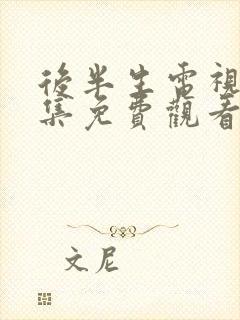 後半生電視
集免費觀看
文尼